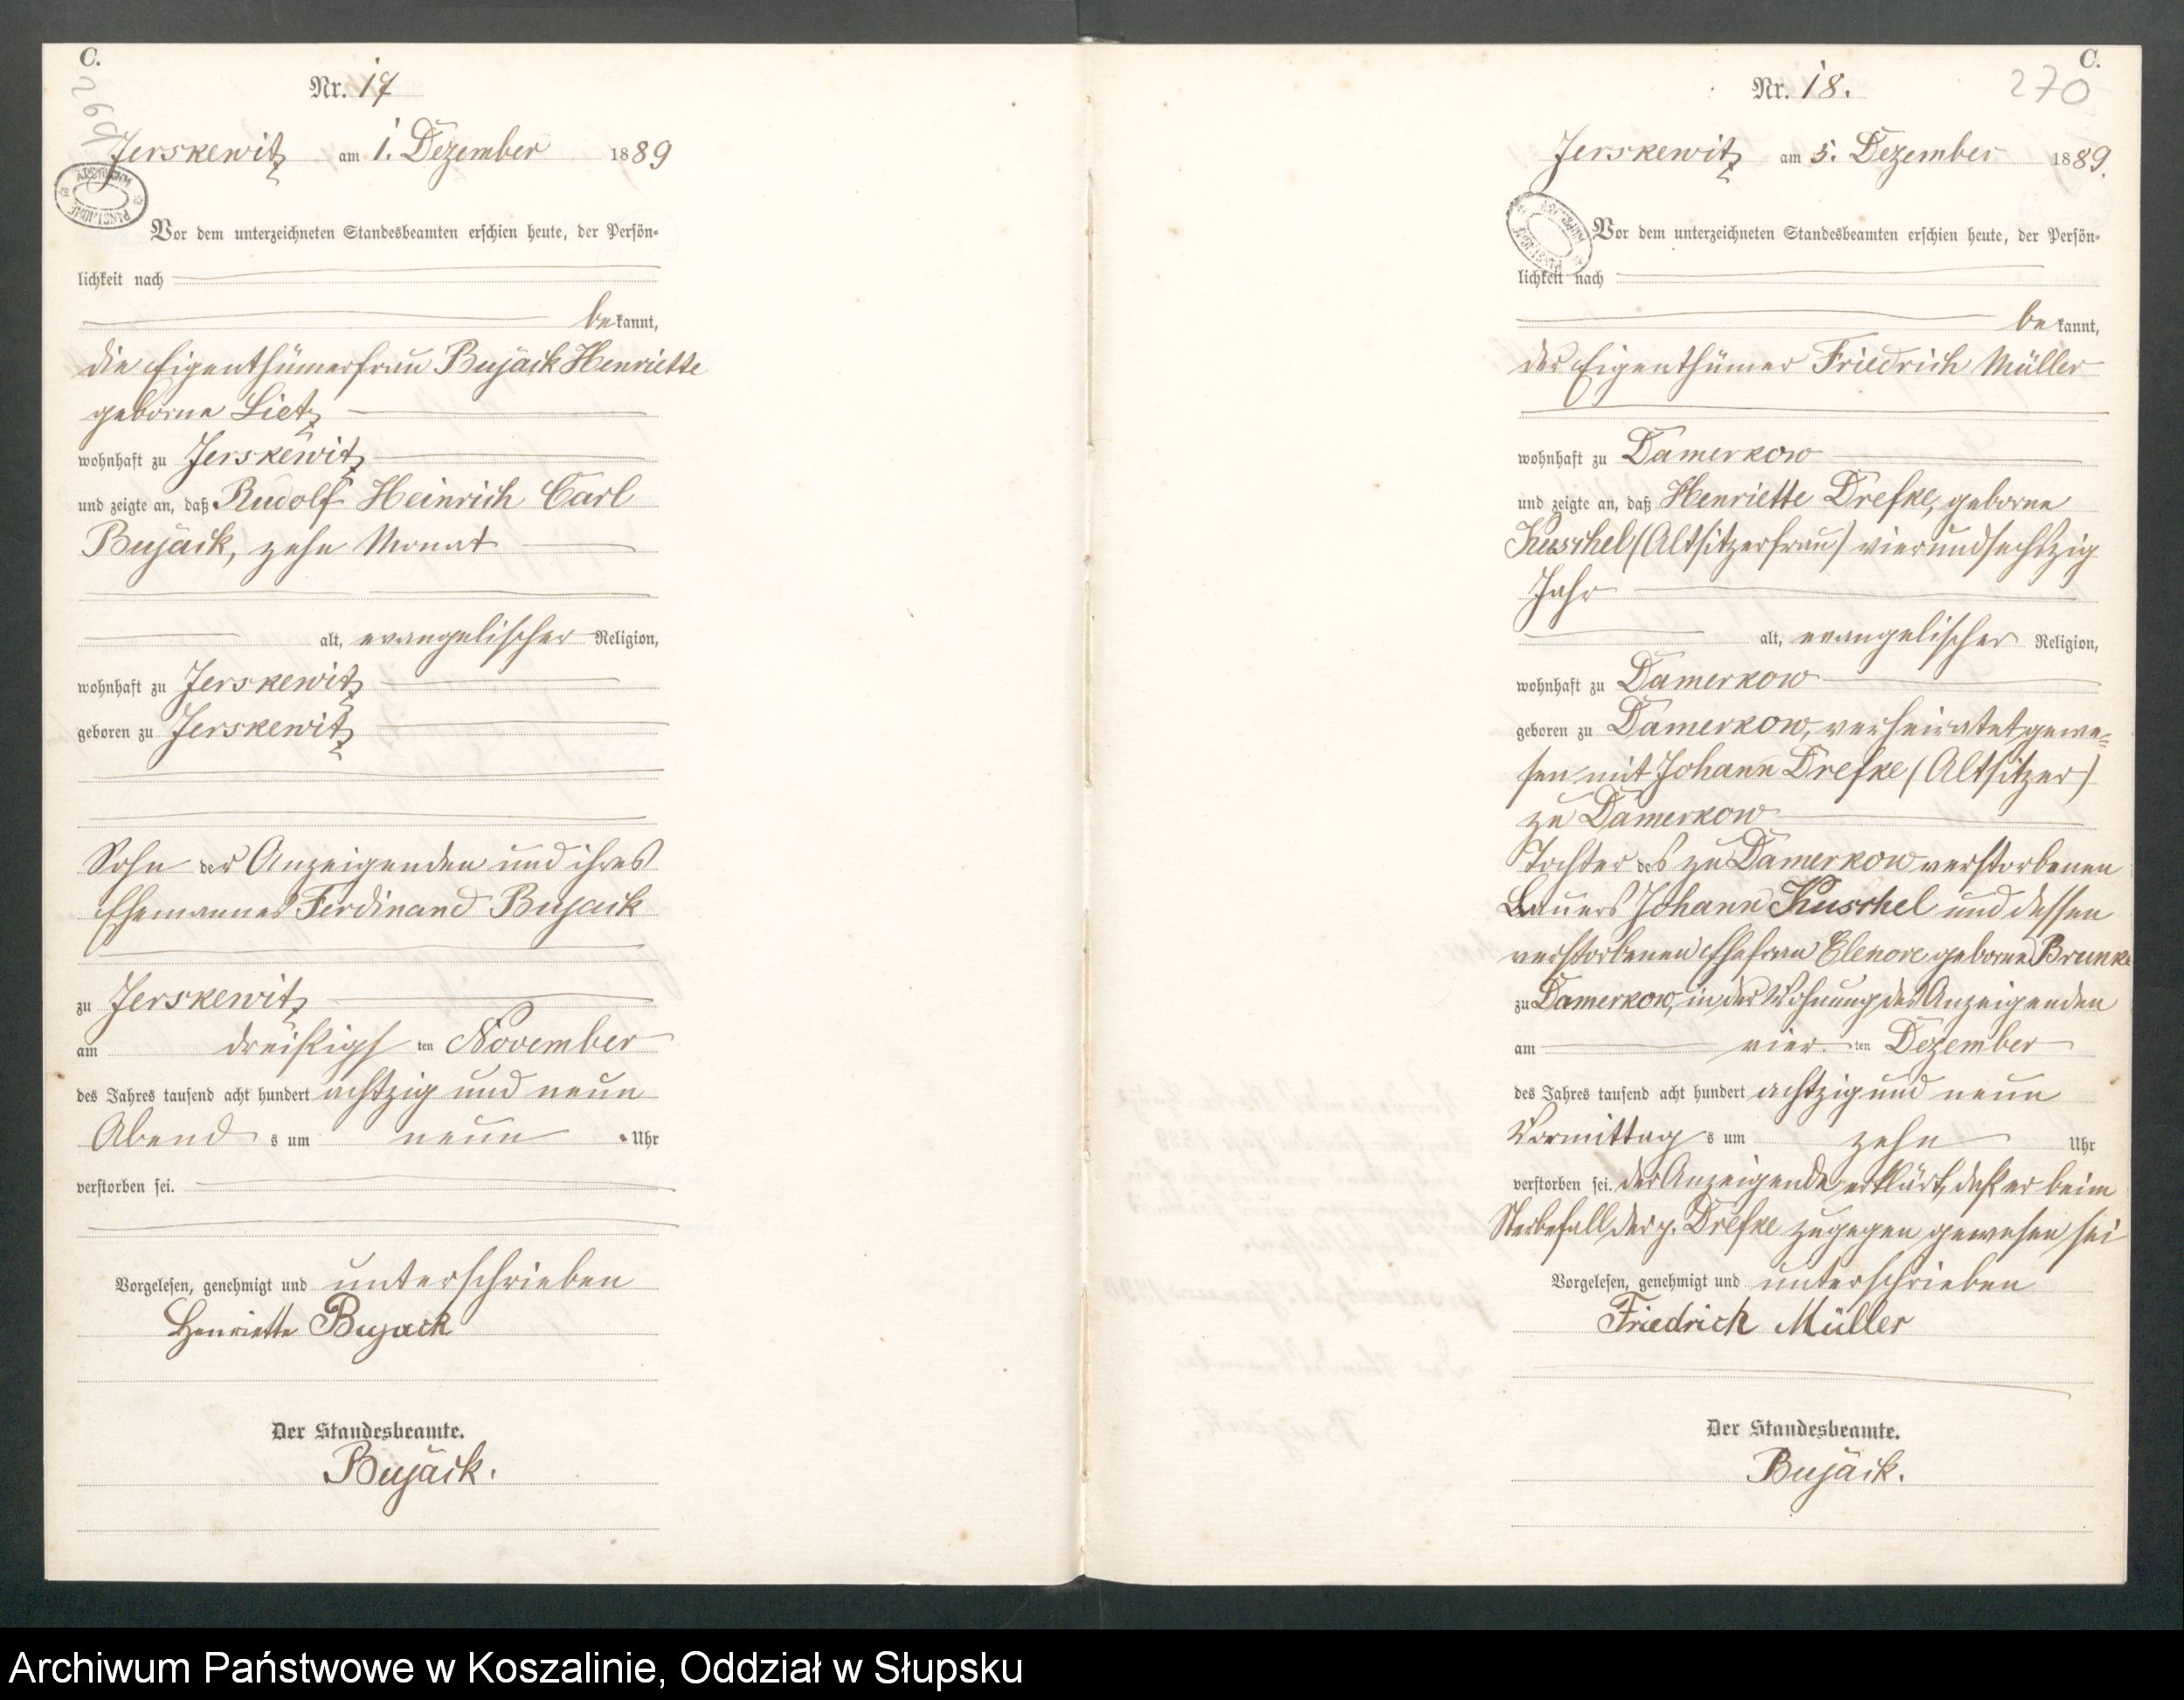 C.
Nr. 17
269
Jerskewitz am 1. Dezember 1889
Vor dem unterzeichneten Standesbeamten erschien heute, der Persön-
lichkeit nach
bekannt,
die Eigenthümerfrau Bujäck Henriette
geborne Lietz
wohnhaft zu Jerskewitz
und zeigte an, daß Rudolf Heinrich Carl
Bujäck, zehn Monat
alt, evangelischer Religion,
wohnhaft zu Jerskewitz
geboren zu Jerskewitz
Sohn der Anzeigenden und ihres
Ehemannes Ferdinand Bujack
zu Jerskewitz
am dreißigsten November
des Jahres tausend acht hundert achtzig und neun
Abends um neun Uhr
verstorben sei.
Vorgelesen, genehmigt und unterschrieben
Henriette Bujack
Der Standesbeamte.
Bujäck.
C.
Nr. 18.
270
Jerskewitz am 5. Dezember 1889.
Vor dem unterzeichneten Standesbeamten erschien heute, der Persön-
lichkeit nach
bekannt,
der Eigenthümer Friedrich Müller
wohnhaft zu Damerkow
und zeigte an, daß Henriette Drefke, geborne
Kuschel (Altsitzerfrau) vierundsechszig
Jahr
alt, evangelischer Religion,
wohnhaft zu Damerkow
geboren zu Damerkow, verheiratet gewe=
sen mit Johann Drefke (Altsitzer)
zu Damerkow
Tochter des zu Damerkow verstorbenen
Bauers Johann Kuschel und dessen
verstorbenen Ehefrau Elenore geborne Brunke
zu Damerkow, in der Wohnung des Anzeigenden
am vierten Dezember
des Jahres tausend acht hundert achtzig und neun
Vormittags um zehn Uhr
verstorben sei. der Anzeigende erklärt, daß er beim
Sterbefall der p. Drefke zugegen gewesen sei
Vorgelesen, genehmigt und unterschrieben
Friedrich Müller
Der Standesbeamte.
Bujäck.
Archiwum Państwowe w Koszalinie, Oddział w Słupsku